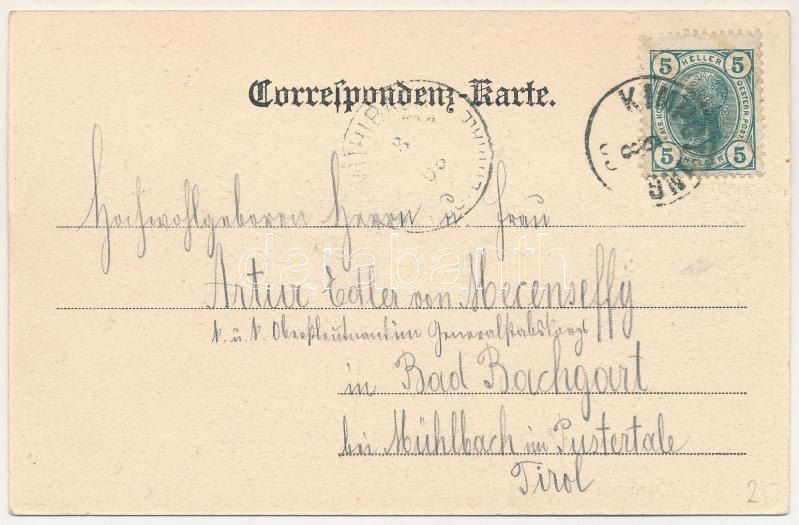 Correspondenz-Karte.
5 HELLER 5
KAIS. KÖN. OESTERR. POST
5 HELLER 5
Hochwohlgeboren Herrn u Frau
darabanth
Artur Edler von Mecenseffy
k. u. k. Oberstleutnant im Generalstabskorps
in Bad Bachgart
bei Mühlbach im Pustertale
Tirol
2.-